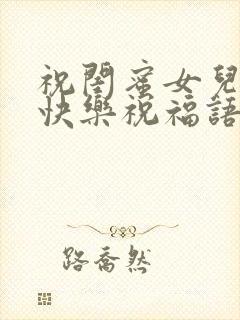 祝閨蜜女兒
快樂祝福語
路喬然